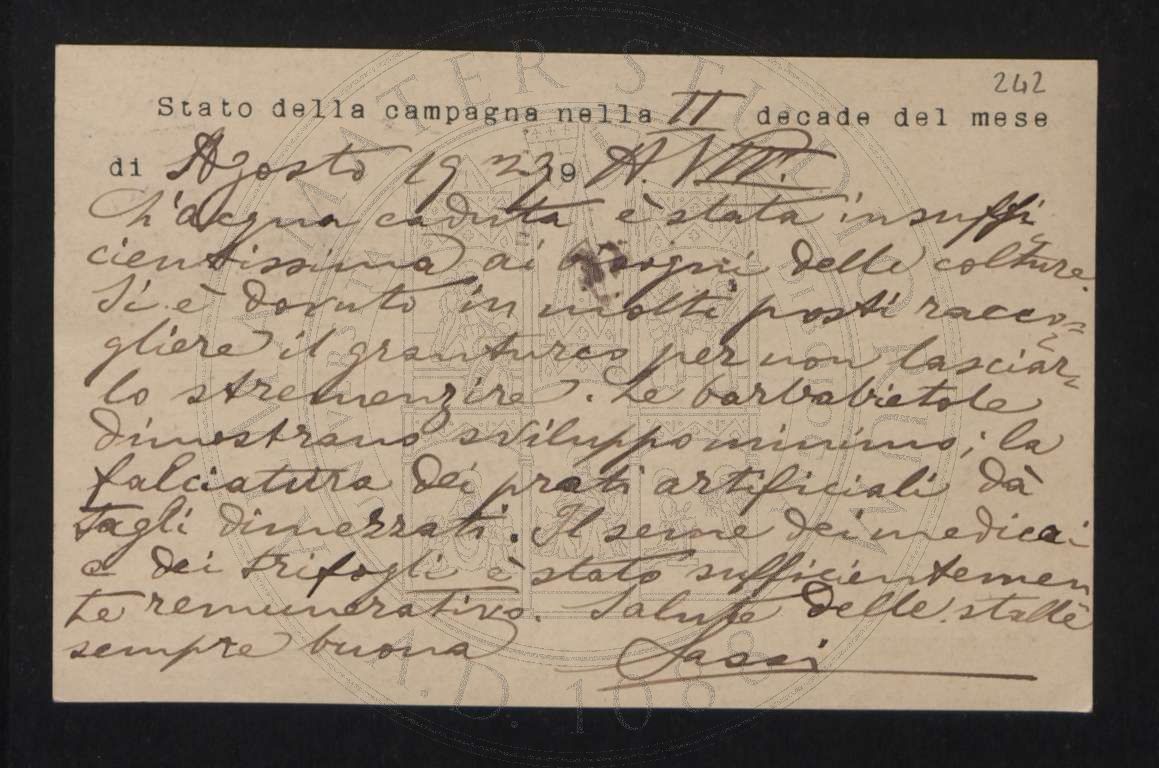 242
Stato della campagna nella II decade del mese
di Agosto 1929 A. VII.
L'acqua caduta è stata insuffi
cientissima ai bisogni delle colture.
Si è dovuto in molti posti racco=
gliere il granturco per non lasciar=
lo stremenzire. Le barbabietole
dimostrano sviluppo minimo; la
falciatura dei prati artificiali dà
tagli dimezzati. Il seme dei medicai
e dei trifogli è stato sufficientemen
te remunerativo. Salute delle stalle
sempre buona
Sassi
ALMA MATER STUDIORUM
A.D. 1088